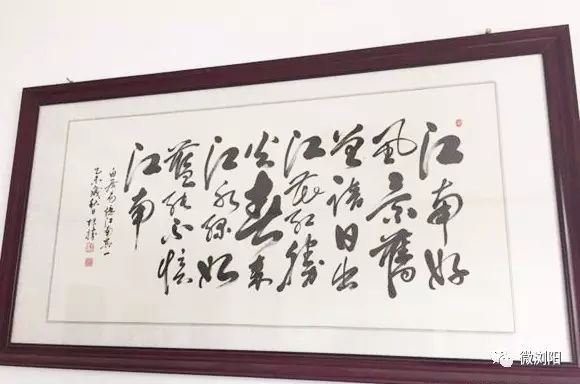 江南好
風景舊
曾諳日出
江花红勝
火春来
江水绿如
藍能不憶
江南
白居易憶江南
乙未歲秋日
微浏阳